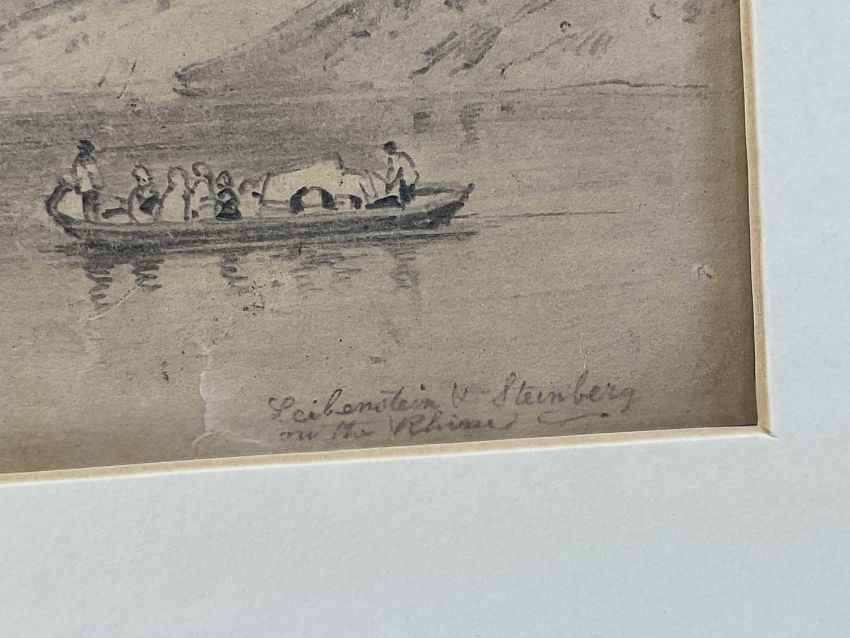 Leibenstein & Steinberg
on the Rhine